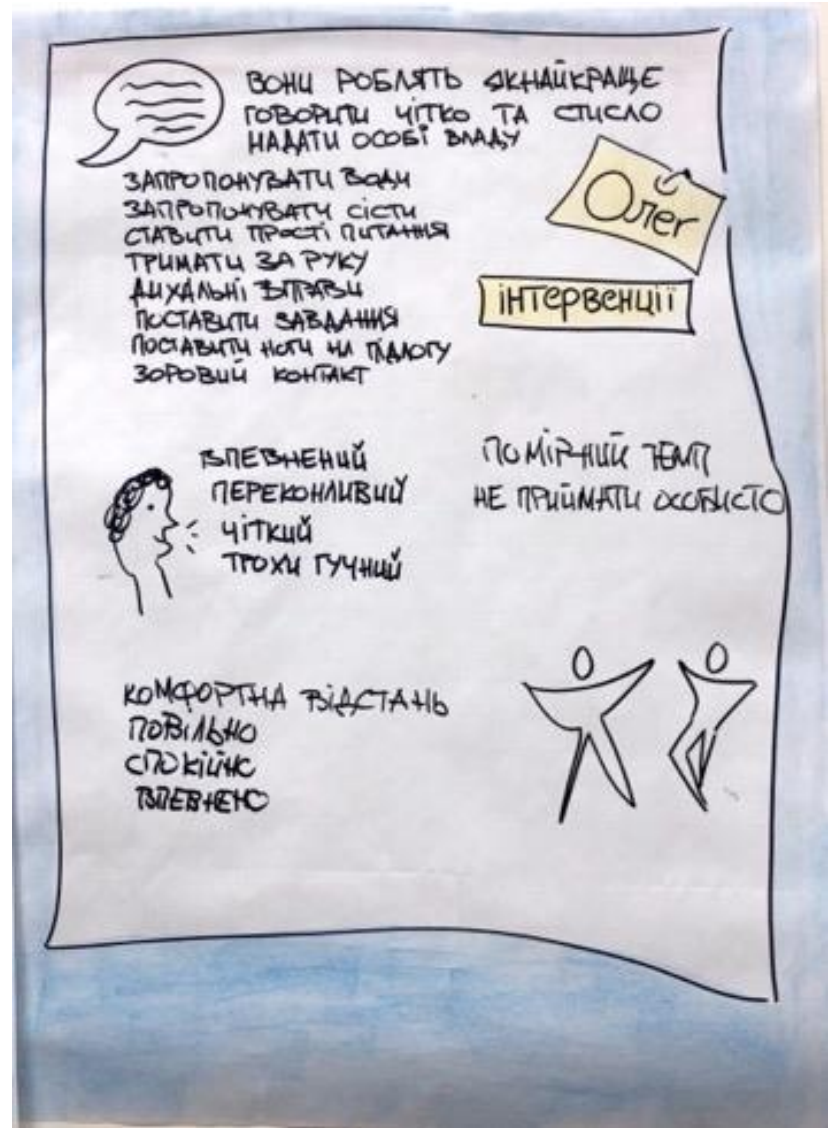 ВОНИ РОБЛЯТЬ ЯКНАЙКРАЩЕ
ГОВОРИТИ ЧІТКО ТА СТИСЛО
НАДАТИ ОСОБІ ВЛАДУ
ЗАПРОПОНУВАТИ ВОДИ
ЗАПРОПОНУВАТИ СІСТИ
СТАВИТИ ПРОСТІ ПИТАННЯ
ТРИМАТИ ЗА РУКУ
ДИХАЛЬНІ ВПРАВИ
ПОСТАВИТИ ЗАВДАННЯ
ПОСТАВИТИ НОГИ НА ПІДЛОГУ
ЗОРОВИЙ КОНТАКТ
Олег
інтервенції
ВПЕВНЕНИЙ
ПЕРЕКОНЛИВИЙ
ЧІТКИЙ
ТРОХИ ГУЧНИЙ
ПОМІРНИЙ ТЕМП
НЕ ПРИЙМАТИ ОСОБИСТО
КОМФОРТНА ВІДСТАНЬ
ПОВІЛЬНО
СПОКІЙНО
ВПЕВНЕНО